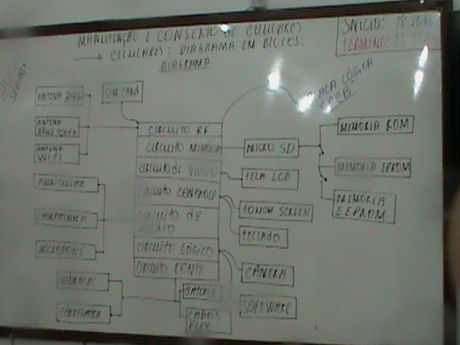 MANUTENÇÃO E CONSERTO DE CELULARES
→ CELULARES: DIAGRAMA EM BLOCOS.
DIAGRAMA
INÍCIO: 18
TÉRMINO:
PLACA LÓGICA
PCB
ANTENA 3G/4G
SIM CARD
ANTENA
BLUETOOTH
ANTENA
WI-FI
AURICULAR
CAMPAINHA
MICROFONE
VIBRACALL
CARREGADOR
CIRCUITO RF
CIRCUITO MEMÓRIA
CIRCUITO DE VÍDEO
CIRCUITO CONTROLE
CIRCUITO DE
ÁUDIO
CIRCUITO LÓGICO
CIRCUITO FONTE
BATERIA
CABOS
FLEX
MICRO SD
TELA LCD
TOUCH SCREEN
TECLADO
CÂMERA
SOFTWARE
MEMÓRIA ROM
MEMÓRIA EPROM
MEMÓRIA
EEPROM